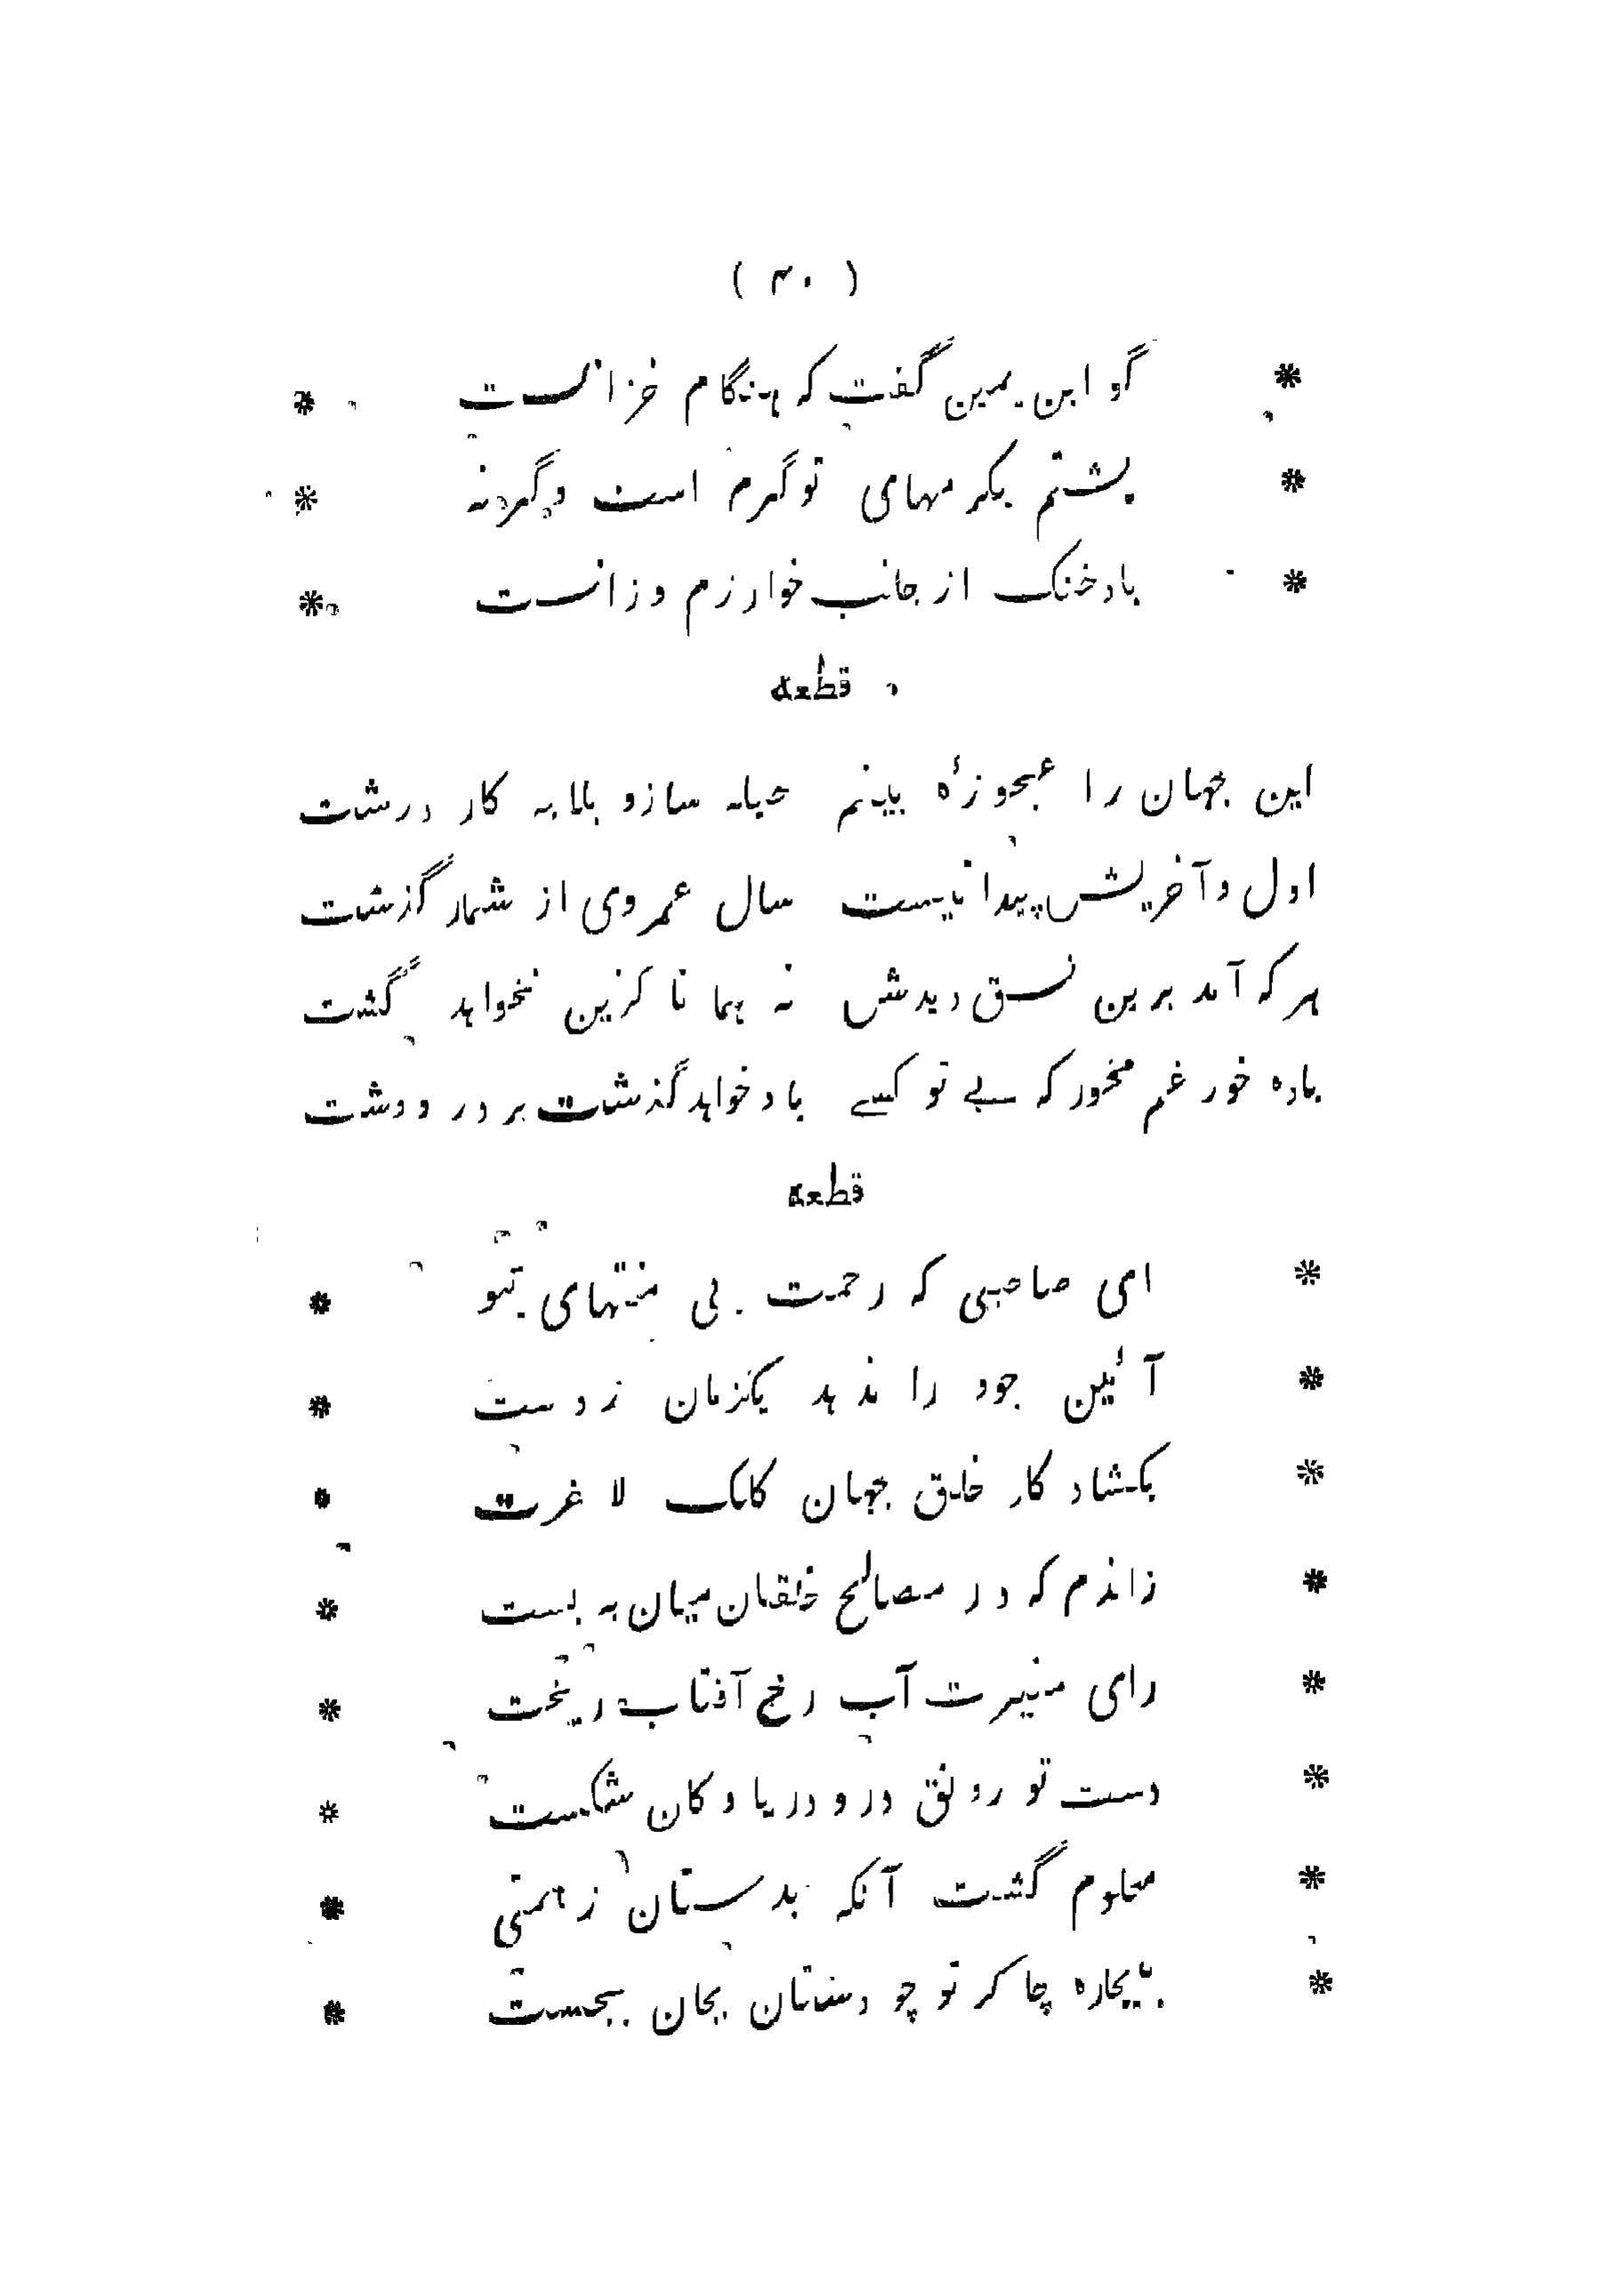 ( ۴۰ )
* گو ابن یمین گفت که هنگام خزانست *
* پشتم بکرمهای تو گرم است وگرنه *
* باد خنک از جانب خوارزم وزانست *
قطعه
این جهان را عجوزهٔ بینم حیله سازو بلابه کار درشت
اول و آخریش پیدا نیست سال عمر وی از شمار گذشت
هر که آمد برین نسق دیدش نه همانا کزین نخواهد گشت
باده خور غم مخور که بے تو کسے باد خواهد گذشت بر در و دشت
قطعه
* ای صاحبی که رحمت بی منتهای تو *
* آئین جود را ندهد یکزمان ز دست *
* بکشاد کار خلق جهان کلک لاغرت *
* زاندم که در مصالح خلقان میان به بست *
* رای منیرت آب رخ آفتاب ریخت *
* دست تو رونق در و دریا و کان شکست *
* معلوم گشت آنکه بدستان ز همتی *
* بیچاره چاکر تو چو دستان بجان بجست *